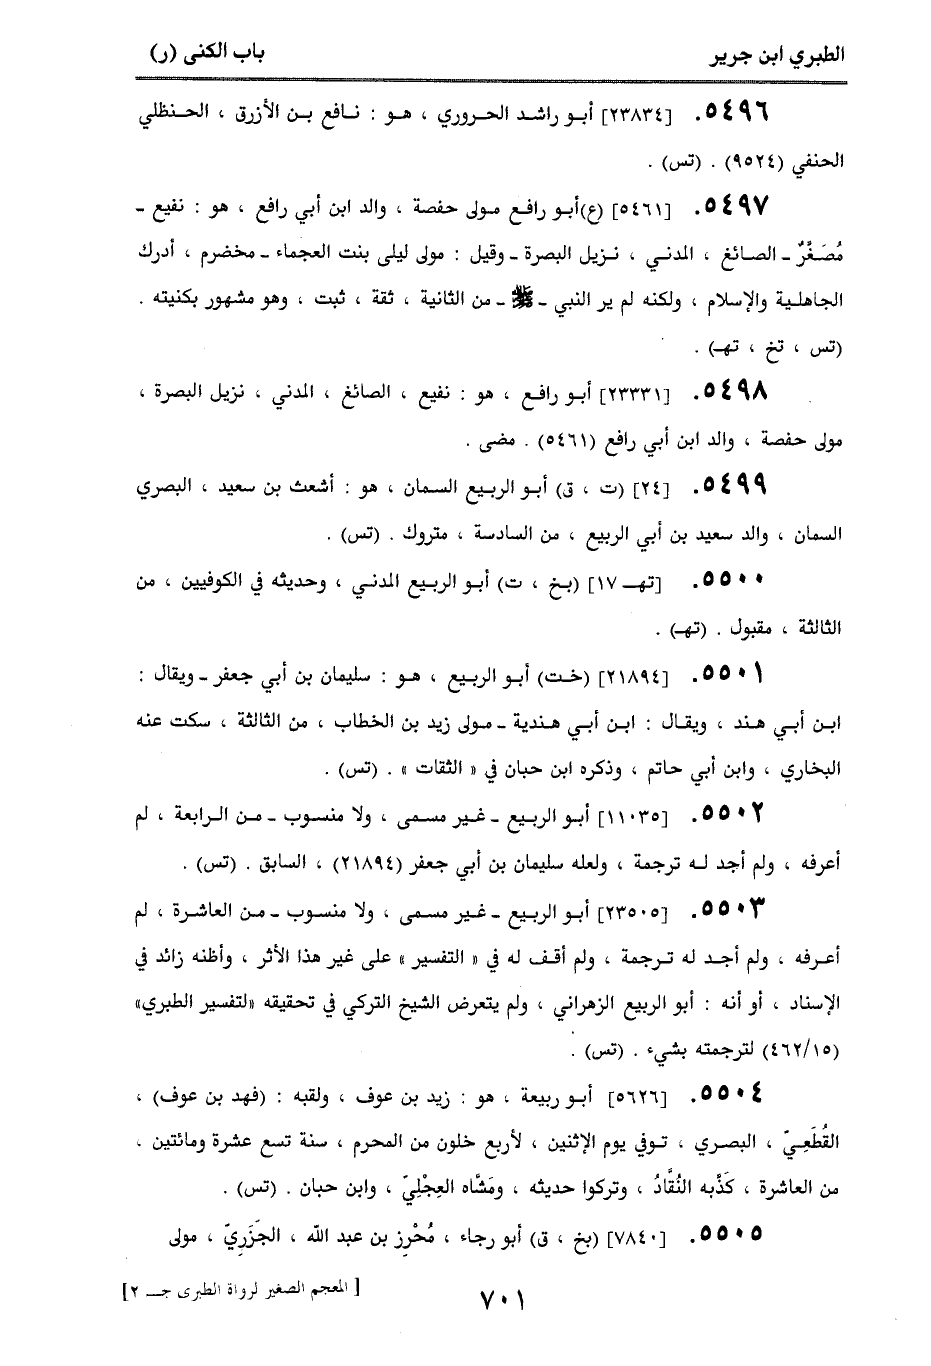 الطبري ابن جرير
باب الكنى (ر)
٥٤٩٦. [٢٣٨٣٤] أبو راشد الحروري ، هو : نافع بن الأزرق ، الحنظلي
الحنفي (٩٥٢٤) . (تس) .
٥٤٩٧. [٥٤٦١] (ع)أبو رافع مولى حفصة ، والد ابن أبي رافع ، هو : نفيع ـ
مُصَغَّرٌ ـ الصائغ ، المدني ، نزيل البصرة ـ وقيل : مولى ليلى بنت العجماء ـ مخضرم ، أدرك
الجاهلية والإسلام ، ولكنه لم ير النبي ـ ﷺ ـ من الثانية ، ثقة ، ثبت ، وهو مشهور بكنيته .
(تس ، تخ ، تهـ) .
٥٤٩٨. [٢٣٣٣١] أبو رافع ، هو : نفيع ، الصائغ ، المدني ، نزيل البصرة ،
مولى حفصة ، والد ابن أبي رافع (٥٤٦١) . مضى .
٥٤٩٩. [٢٤] (ت ، ق) أبو الربيع السمان ، هو : أشعث بن سعيد ، البصري
السمان ، والد سعيد بن أبي الربيع ، من السادسة ، متروك . (تس) .
٥٥٠٠. [تهـ ١٧] (بخ ، ت) أبو الربيع المدني ، وحديثه في الكوفيين ، من
الثالثة ، مقبول . (تهـ) .
٥٥٠١. [٢١٨٩٤] (خت) أبو الربيع ، هو : سليمان بن أبي جعفر ـ ويقال :
ابن أبي هند ، ويقال : ابن أبي هندية ـ مولى زيد بن الخطاب ، من الثالثة ، سكت عنه
البخاري ، وابن أبي حاتم ، وذكره ابن حبان في « الثقات » . (تس) .
٥٥٠٢. [١١٠٣٥] أبو الربيع ـ غير مسمى ، ولا منسوب ـ من الرابعة ، لم
أعرفه ، ولم أجد له ترجمة ، ولعله سليمان بن أبي جعفر (٢١٨٩٤) ، السابق . (تس) .
٥٥٠٣. [٢٣٥٠٥] أبو الربيع ـ غير مسمى ، ولا منسوب ـ من العاشرة ، لم
أعرفه ، ولم أجد له ترجمة ، ولم أقف له في « التفسير » على غير هذا الأثر ، وأظنه زائد في
الإسناد ، أو أنه : أبو الربيع الزهراني ، ولم يتعرض الشيخ التركي في تحقيقه «لتفسير الطبري»
(٤٦٢/١٥) لترجمته بشيء . (تس) .
٥٥٠٤. [٥٦٢٦] أبو ربيعة ، هو : زيد بن عوف ، ولقبه : (فهد بن عوف) ،
القُطَعِيّ ، البصري ، توفي يوم الإثنين ، لأربع خلون من المحرم ، سنة تسع عشرة ومائتين ،
من العاشرة ، كَذَّبه النُقَّادُ ، وتركوا حديثه ، ومَشَّاه العِجْلِيّ ، وابن حبان . (تس) .
٥٥٠٥. [٧٨٤٠] (بخ ، ق) أبو رجاء ، مُحْرِز بن عبد الله ، الجَزَرِيّ ، مولى
[ المعجم الصغير لرواة الطبرى جـ ٢]
٧٠١